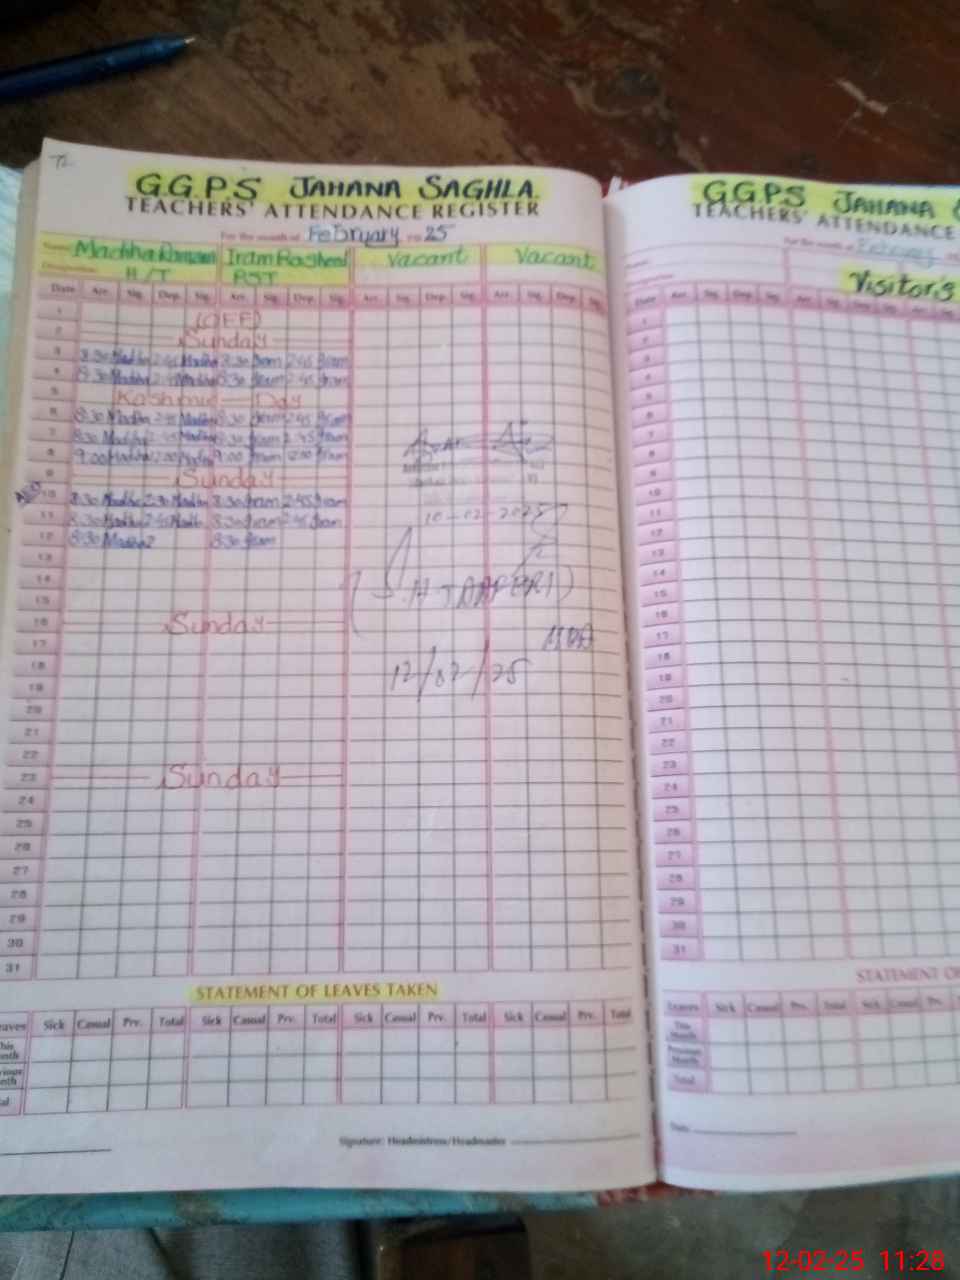 72
G.G.P.S JAHANA SAGHLA.
TEACHERS' ATTENDANCE REGISTER
For the month of February 25
Name Madiha Ramzan Iram Rasheed Vacant Vacant
Designation H/T PST
Date Arr. Sig. Dep. Sig. Arr. Sig. Dep. Sig. Arr. Sig. Dep. Sig. Arr. Sig. Dep. Sig.
1 (OFF)
2 Sunday
3 8:30 Madiha 2:45 Madiha 8:30 Iram 2:45 Iram
4 8:30 Madiha 2:45 Madiha 8:30 Iram 2:45 Iram
5 Kashmir Day
6 8:30 Madiha 2:45 Madiha 8:30 Iram 2:45 Iram
7 8:30 Madiha 2:45 Madiha 8:30 Iram 2:45 Iram
8 9:00 Madiha 12:00 Madiha 9:00 Iram 12:00 Iram
9 Sunday
10 8:30 Madiha 2:30 Madiha 8:30 Iram 2:45 Iram
11 8:30 Madiha 2:45 Madiha 8:30 Iram 2:45 Iram
12 8:30 Madiha 8:30 Iram
10-02-2025
13
14
15
16 Sunday
17
18
12/02/25
19
20
21
22
23 Sunday
24
25
26
27
28
29
30
31
STATEMENT OF LEAVES TAKEN
eaves Sick Casual Prv. Total Sick Casual Prv. Total Sick Casual Prv. Total Sick Casual Prv. Total
This
onth
vious
nth
tal
Signature: Headmistress/Headmaster
G.G.P.S JAHANA
TEACHERS' ATTENDANCE
For the month of February
Visitor's
Date Arr. Sig. Dep. Sig. Arr. Sig. Dep. Sig. Arr. Sig.
1
2
3
4
5
6
7
8
9
10
11
12
13
14
15
16
17
18
19
20
21
22
23
24
25
26
27
28
29
30
31
STATEMENT O
Leaves Sick Casual Prv. Total Sick Casual Prv. Total
This
Month
Previous
Month
Total
Date
12-02-25 11:28